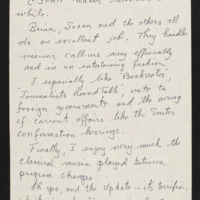 C-SPAN
white.
Brian, Susan and the others all
do an excellent job. They handle
viewer call ins very efficiently
and in an entertaining fashion.
I especially like 'Booknotes',
'Journalists Roundtable', visits to
foreign governments and the airing
of current affairs like the Souter
confirmation hearings.
Finally, I enjoy very much the
classical music played between
program changes.
Oh yes, and the Update... its terrific.